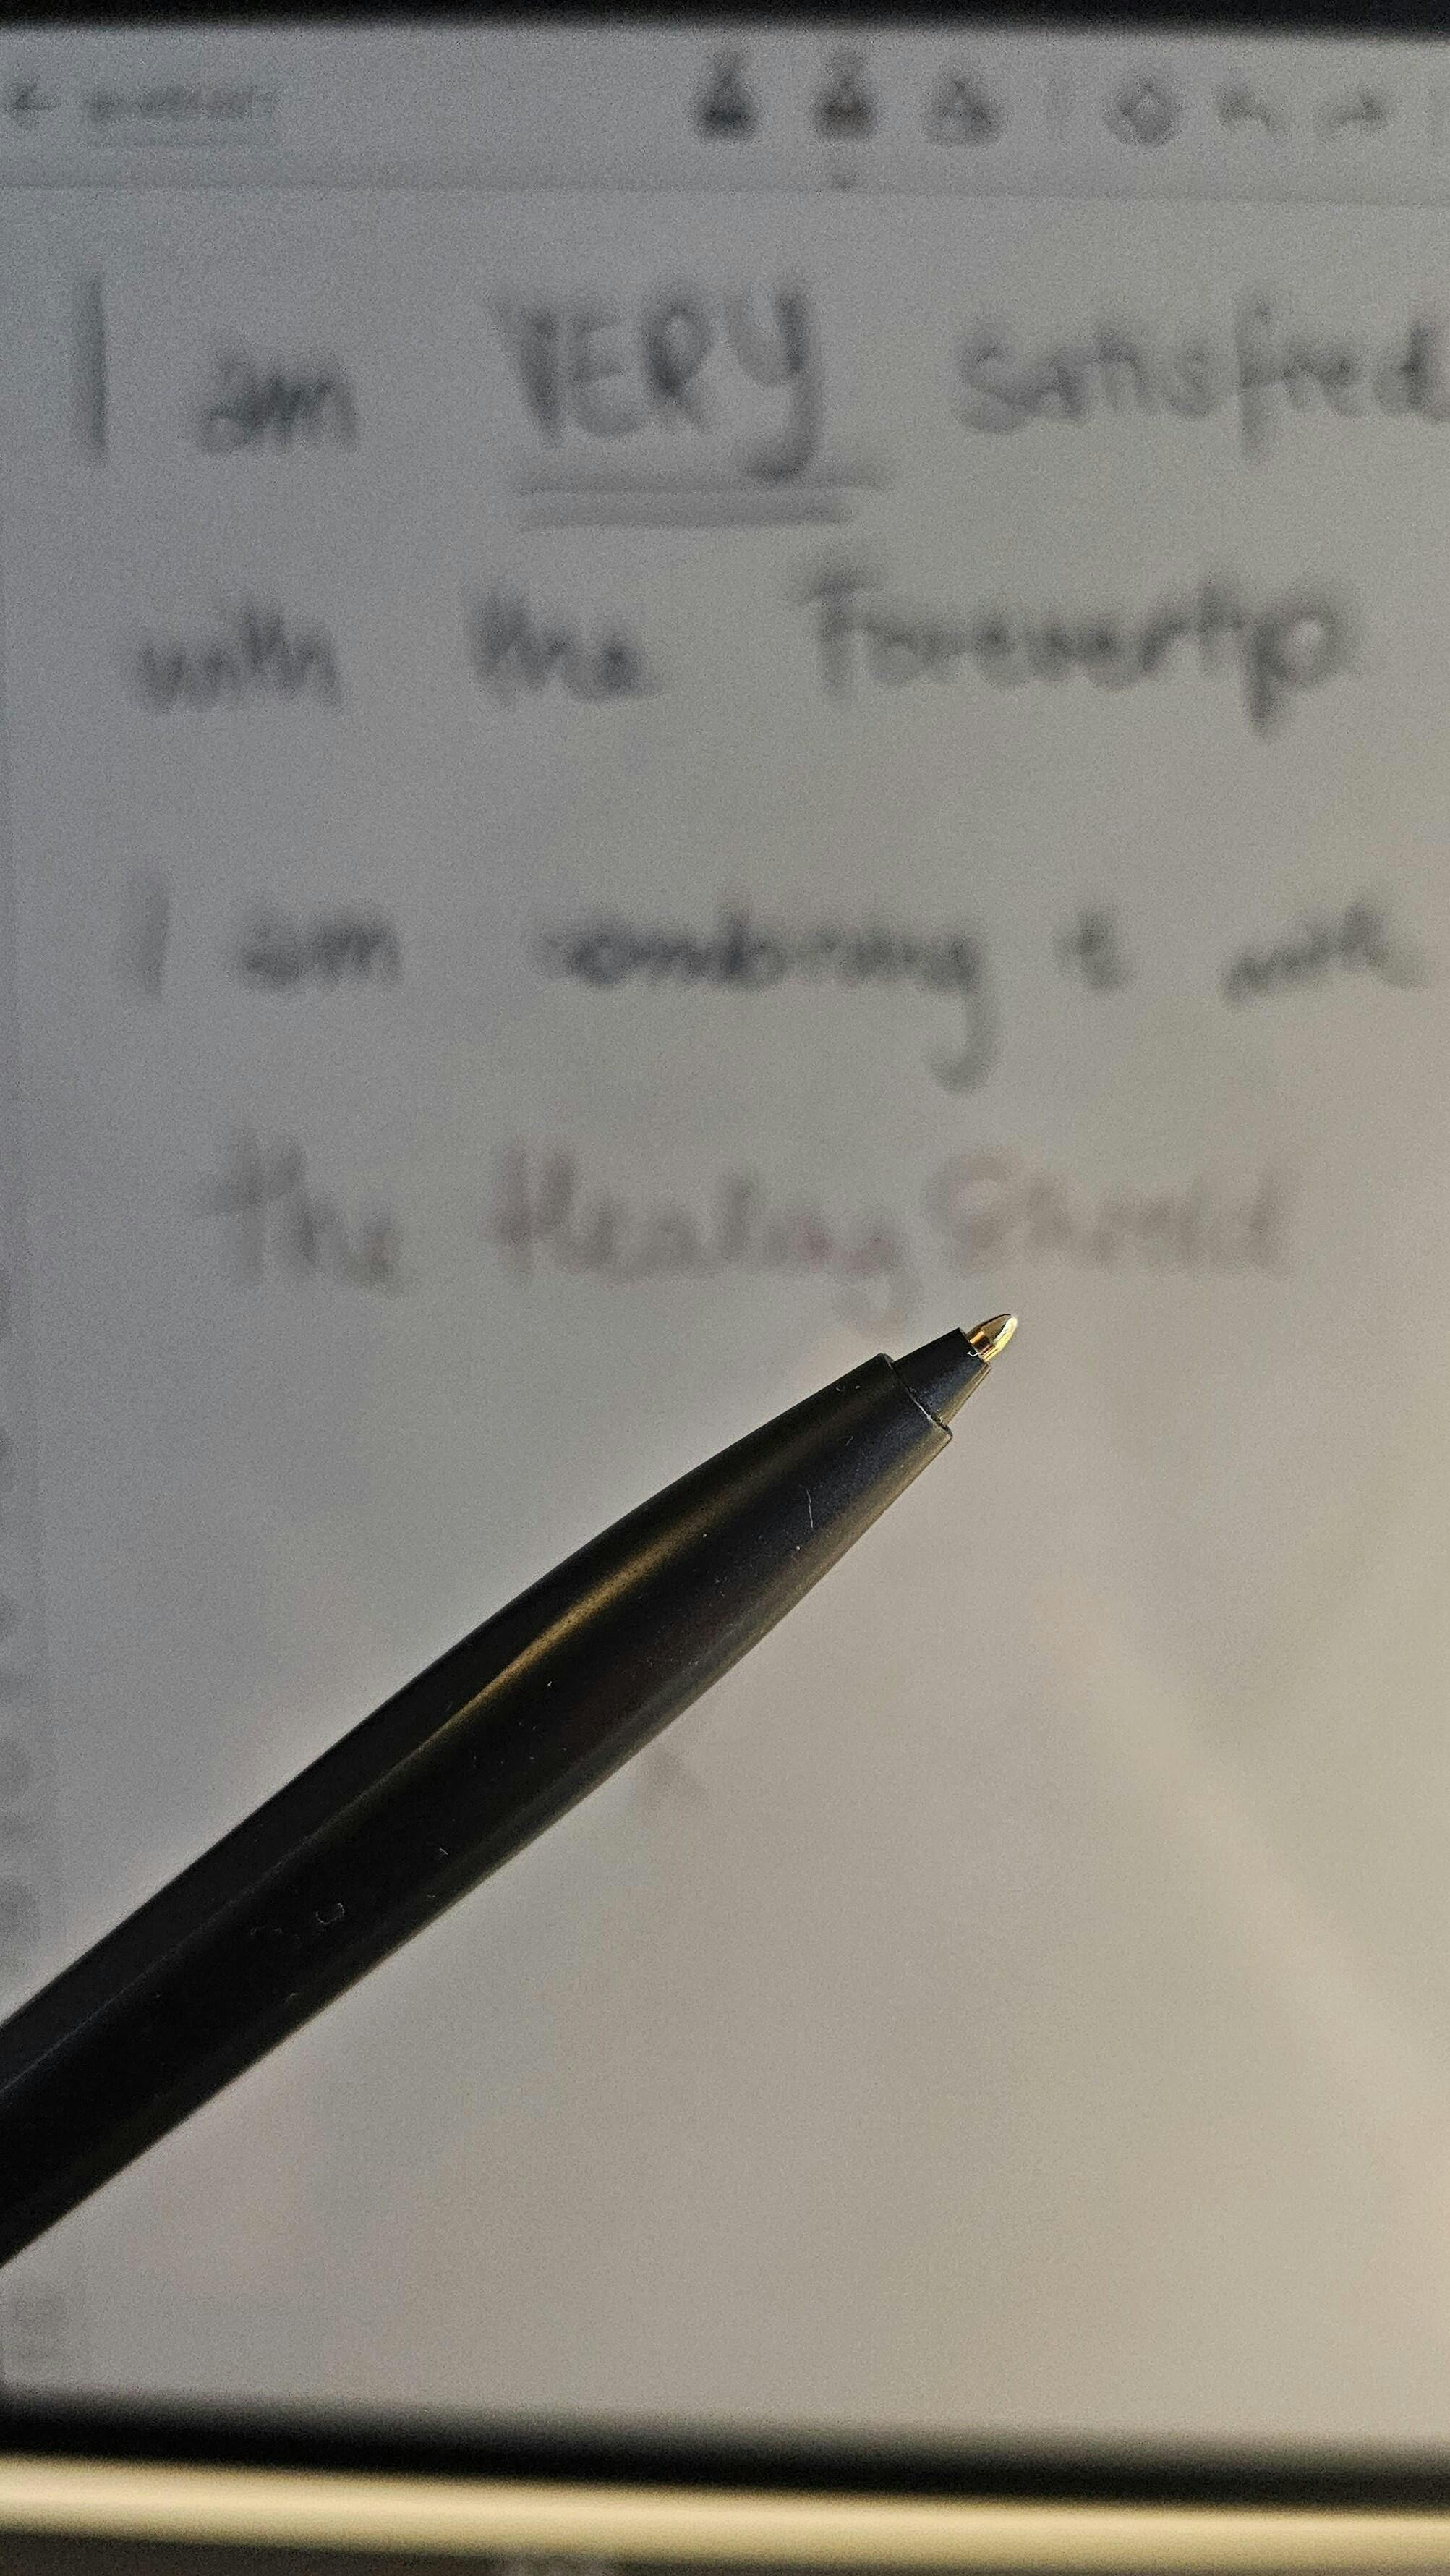 I am VERY satisfied
with the Forevertip
I am combining it with
the Healing Shield